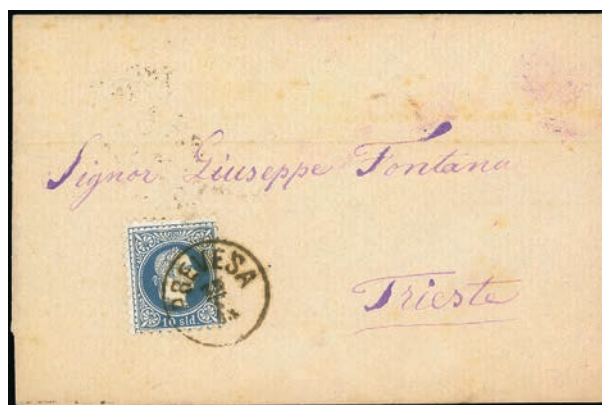 Signor Giuseppe Fontana
PREVESA
10 sld
Trieste